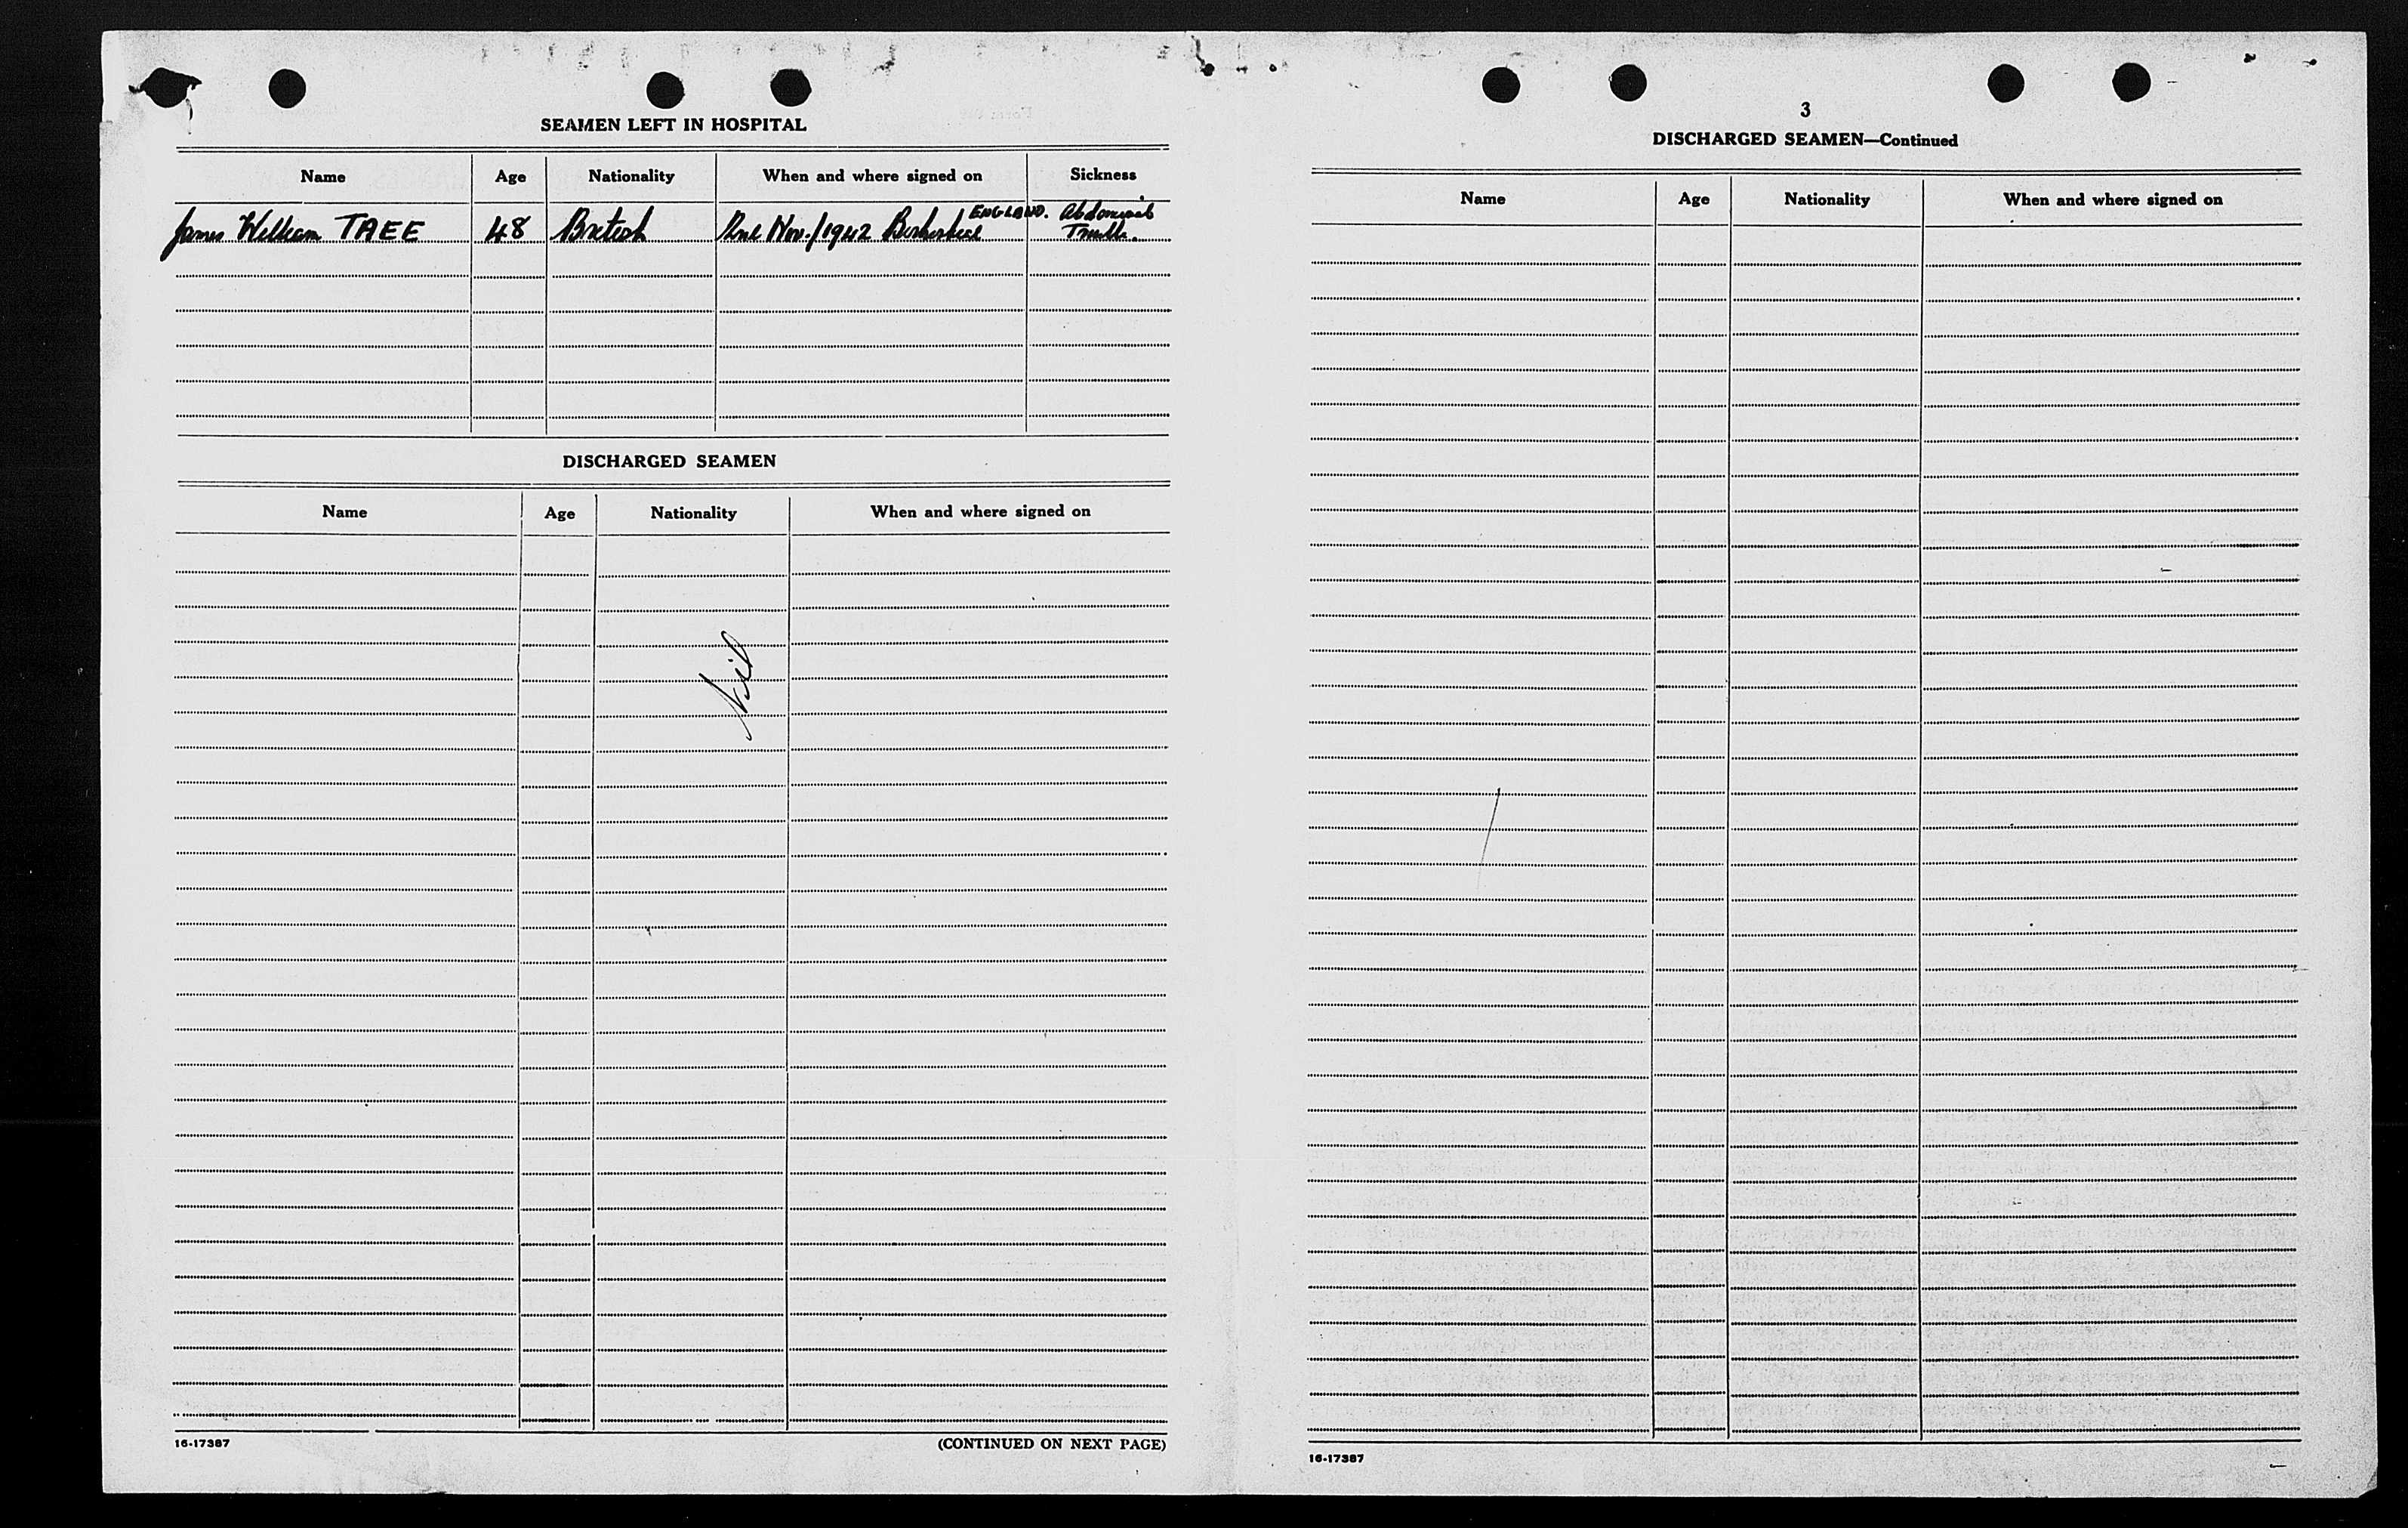 SEAMEN LEFT IN HOSPITAL
Name Age Nationality When and where signed on Sickness
James William TAEE 48 British 2nd Nov./1942 Birkenhead ENGLAND. Abdominal
Trouble.
DISCHARGED SEAMEN
Name Age Nationality When and where signed on
Nil
16-17387 (CONTINUED ON NEXT PAGE)
3
DISCHARGED SEAMEN—Continued
Name Age Nationality When and where signed on
16-17387